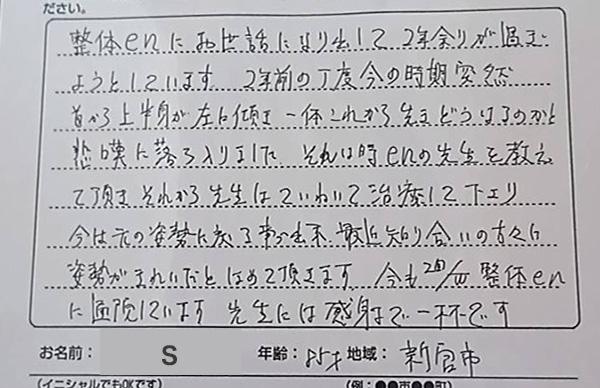 ださい。
整体enにお世話になり出して2年余りが過ぎ
ようとしています 2年前の丁度今の時期突然
首から上半身が左に傾き一体これから先きどうなるのかと
悲嘆に落ち入りました それな時enの先生を教え
て頂き それから先生はていねいで治療して下さり
今は元の姿勢に戻る事が出来 最近知り合いの方々に
姿勢がきれいだとほめて頂きます 今も2回/月整体en
に通院しています 先生には感謝で一杯です
お名前: S 年齢: 地域: 新宮市
(イニシャルでもOKです) (例:●●市●●町)